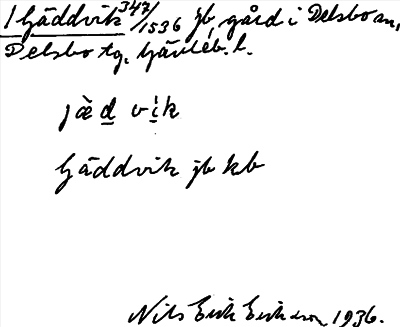 1 Gäddvik 347/1536 jb, gård i Delsbo sn,
Delsbo tg. Gävleb. l.
jä̀d vik
Gäddvik jb kb
Nils Erik Eriksson 1936.